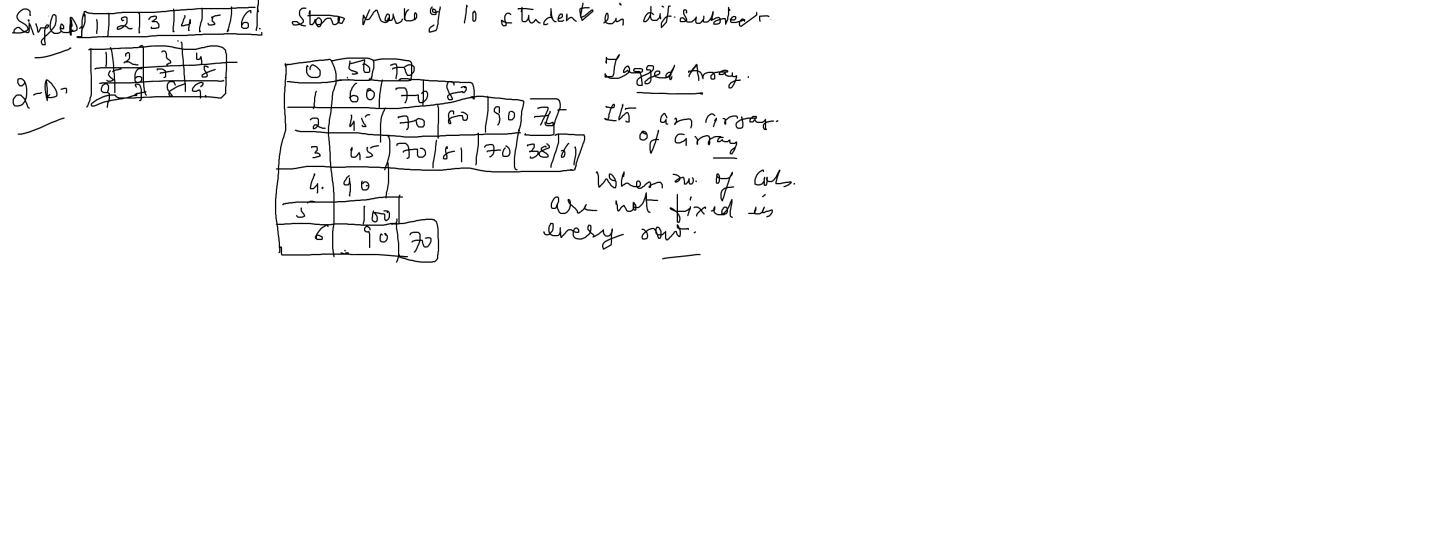 Single D 1 2 3 4 5 6
Store Marks of 10 student in dif. subject
2-D.
1 2 3 4
5 6 7 8
9 7 8 9
0 50 70
1 60 70 80
2 45 70 80 90 72
3 45 70 81 70 38 61
4. 90
5 100
6 90 70
Jagged Array.
Its an array.
of array
When no. of Cols.
are not fixed in
every row.